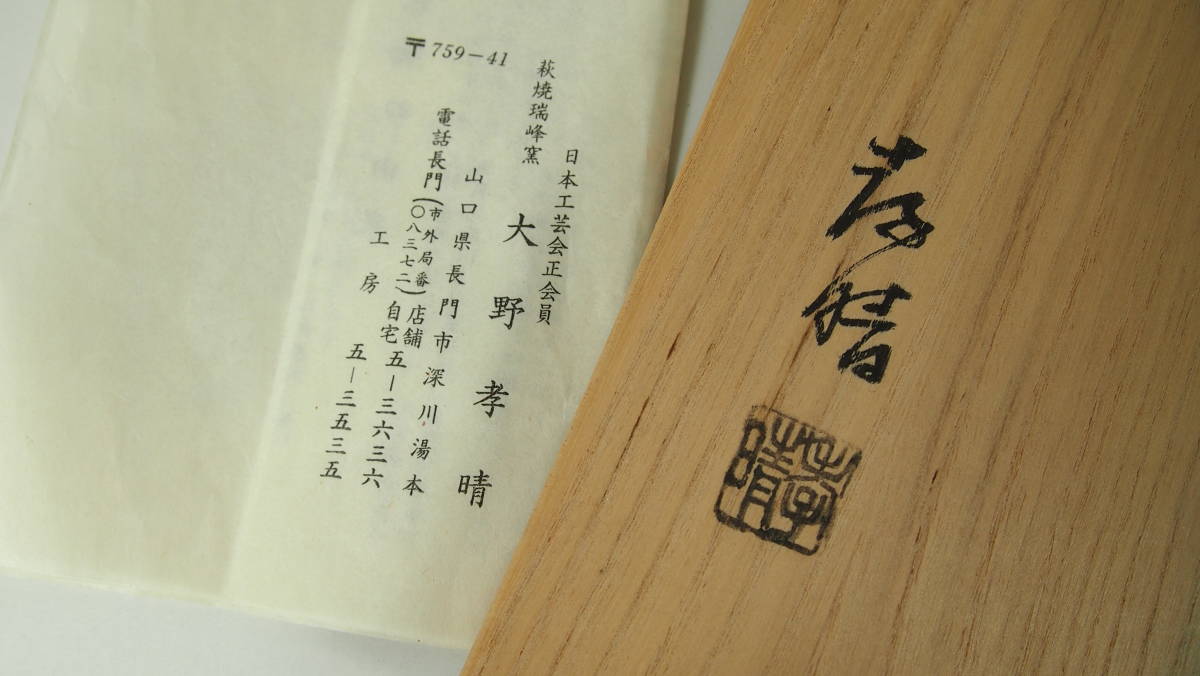 〒759－41
日本工芸会正会員
萩焼瑞峰窯 大野孝晴
山口県長門市深川湯本
電話長門(市外局番〇八三七二)店舗自宅五－三六三六
工房 五－三五三五
孝晴
孝晴